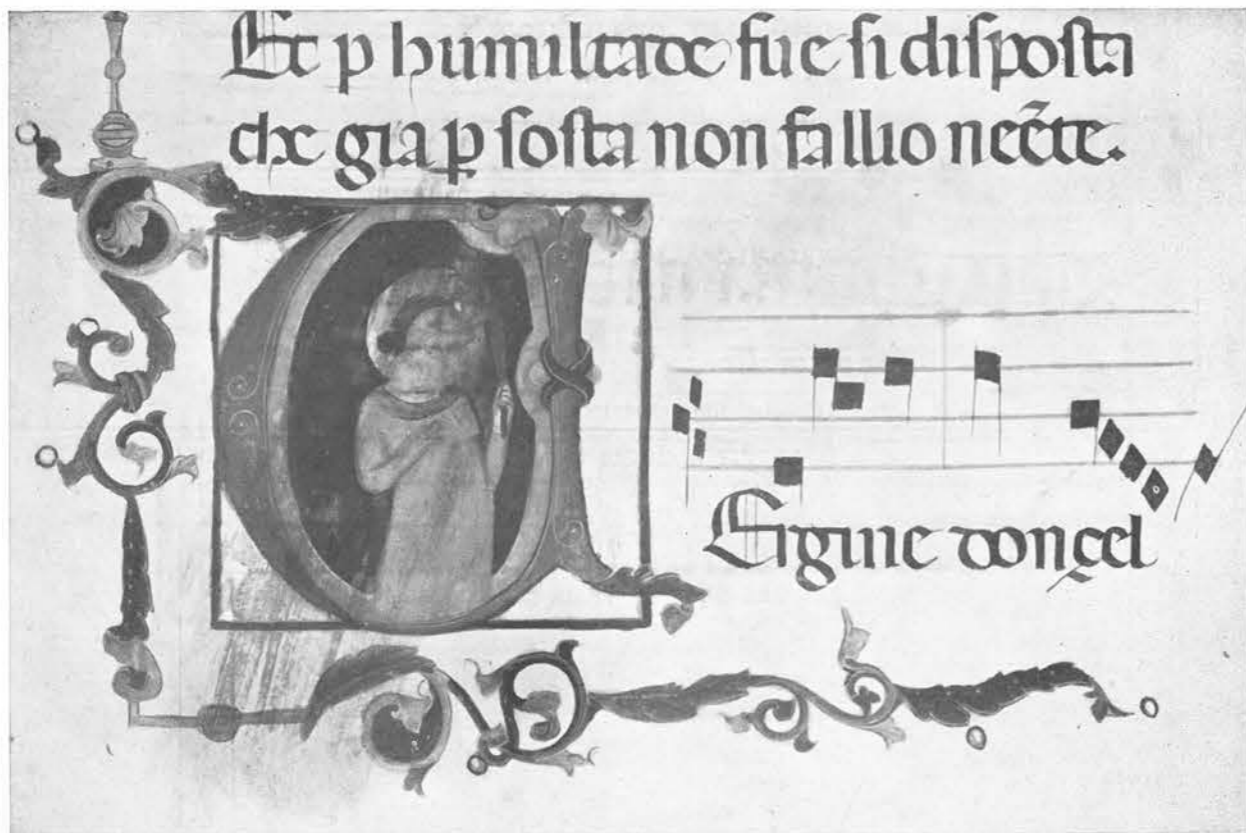 Et p humilitade fue si disposta
che gia p sosta non fallio neẽte.
VErgine donçel